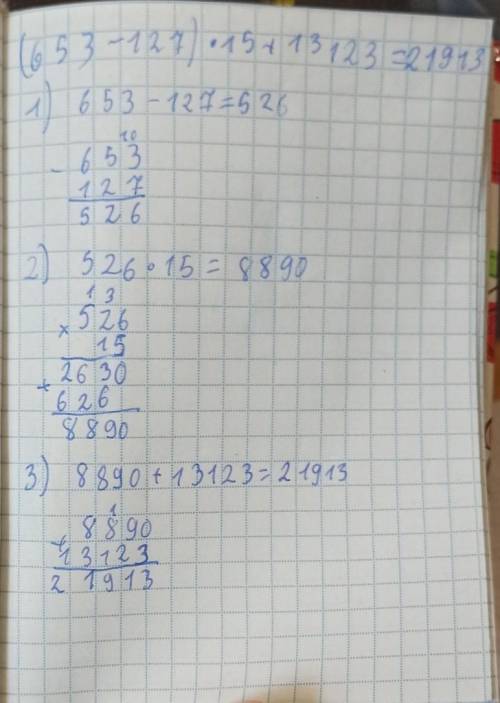 (653-127)·15+13123=21913
1) 653-127=526
10
- 653
127
526
2) 526·15=8890
1 3
× 526
15
+ 2630
626
8890
3) 8890+13123=21913
1
+ 8890
13123
21913